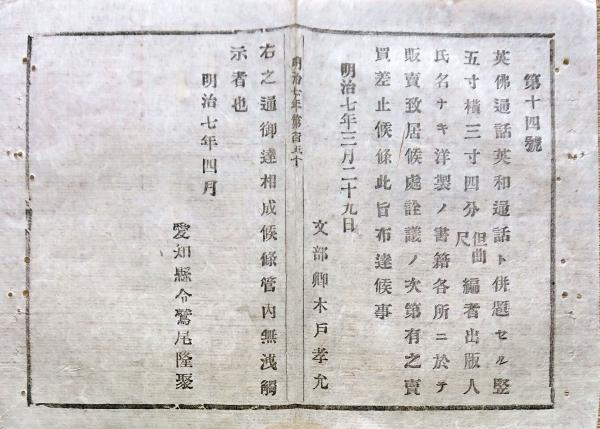 第十四號
英佛通話英和通話ト併題セル竪
五寸横三寸四分但曲尺編者出版人
氏名ナキ洋製ノ書籍各所ニ於テ
販賣致居候處詮議ノ次第有之賣
買差止候條此旨布達候事
明治七年三月二十九日
文部卿木戸孝允
明治七年第百五十
右之通御達相成候條管内無洩觸
示者也
明治七年四月
愛知縣令鷲尾隆聚